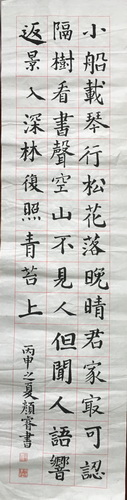 小船載琴行松花落晚晴君家冣可認
隔樹看書聲空山不見人但聞人語響
返景入深林復照青苔上
丙申之夏顏睿書